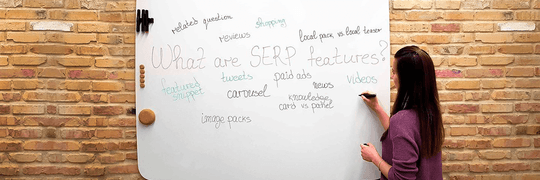 related question
shopping
reviews
local pack vs. local teaser
What are SERP features?
tweets
paid ads
videos
featured
snippet
carousel
news
knowledge
card vs. panel
image packs